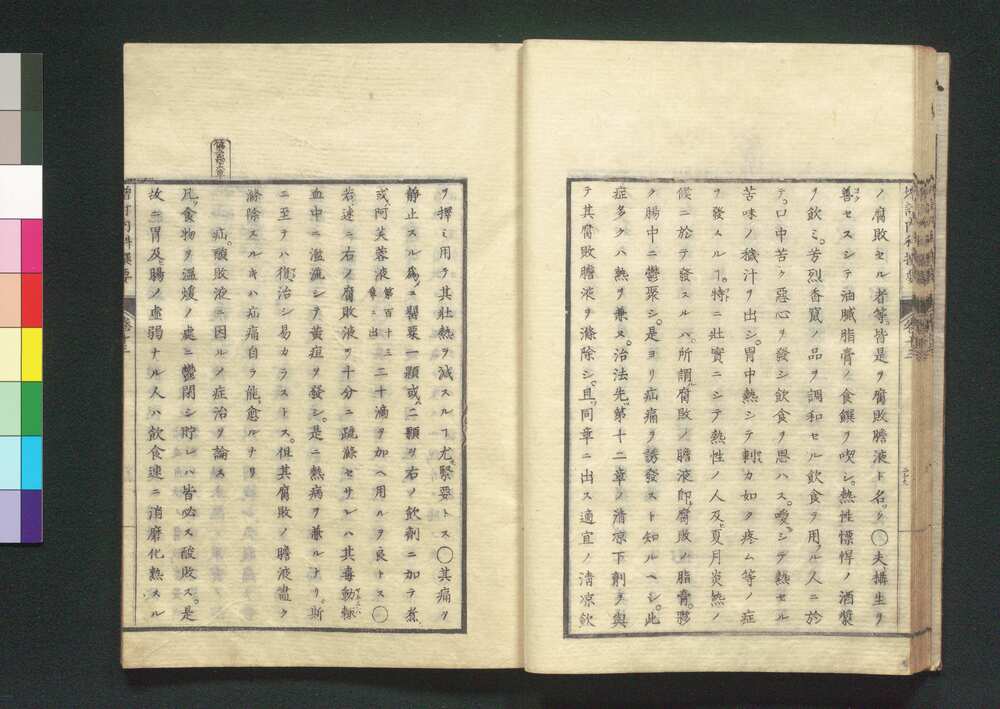 ノ腐敗セル者等。皆是ヲ腐敗膽液ト名ク〇夫攝生ヲ
善セスシテ油膩脂膏ノ食饌ヲ喫シ。熱性慓悍ノ酒漿
ヲ飮ミ。芳烈香竄ノ品ヲ調和セル飮食ヲ用フル人ニ於
テ。口中苦ク惡心ヲ發シ飮食ヲ思ハス。噯シテ熱セル
苦味ノ穢汁ヲ出シ。胃中熱シテ刺カ如ク疼ム等ノ症
ヲ發スルヿ。特ニ壯實ニシテ熱性ノ人及夏月炎熱ノ
候ニ於テ發スルハ。所謂腐敗ノ膽液卽腐敗ノ脂膏。夥
ク腸中ニ鬱聚シ。是ヨリ疝痛ヲ誘發スト知ルヘシ。此
症多クハ熱ヲ兼ヌ。治法先第十二章ノ清凉下劑ヲ與
テ其腐敗膽液ヲ滌除シ。且同章ニ出ス適宜ノ清凉飮
ヲ擇ミ用ヲ其壯熱ヲ減スルヿ尤緊要トス〇其痛ヲ
靜止スル爲ニ罌粟一顆或二顆ヲ右ノ飮劑ニ加テ煮
或阿芙蓉液第百十三章ニ出二十滴ヲ加ヘ用ルヲ良トス〇
若速ニ右ノ腐敗液ヲ十分ニ疏滌セサレハ其毒動輙
血中ニ濫漉シテ黄疸ヲ發シ。是ニ熱病ヲ兼ルナリ。斯
ニ至テハ復治シ易カラストス。但其腐敗ノ膽液盡ク
滌除スルキハ疝痛自ラ能愈ルナリ
疝。酸敗液ニ因ルノ症治ヲ論ス
凡食物ヲ溫煖ノ處ニ鬱閉シ貯レハ皆必ス酸敗ス。是
故ニ胃及腸ノ虛弱ナル人ハ飮食速ニ消磨化熟スル